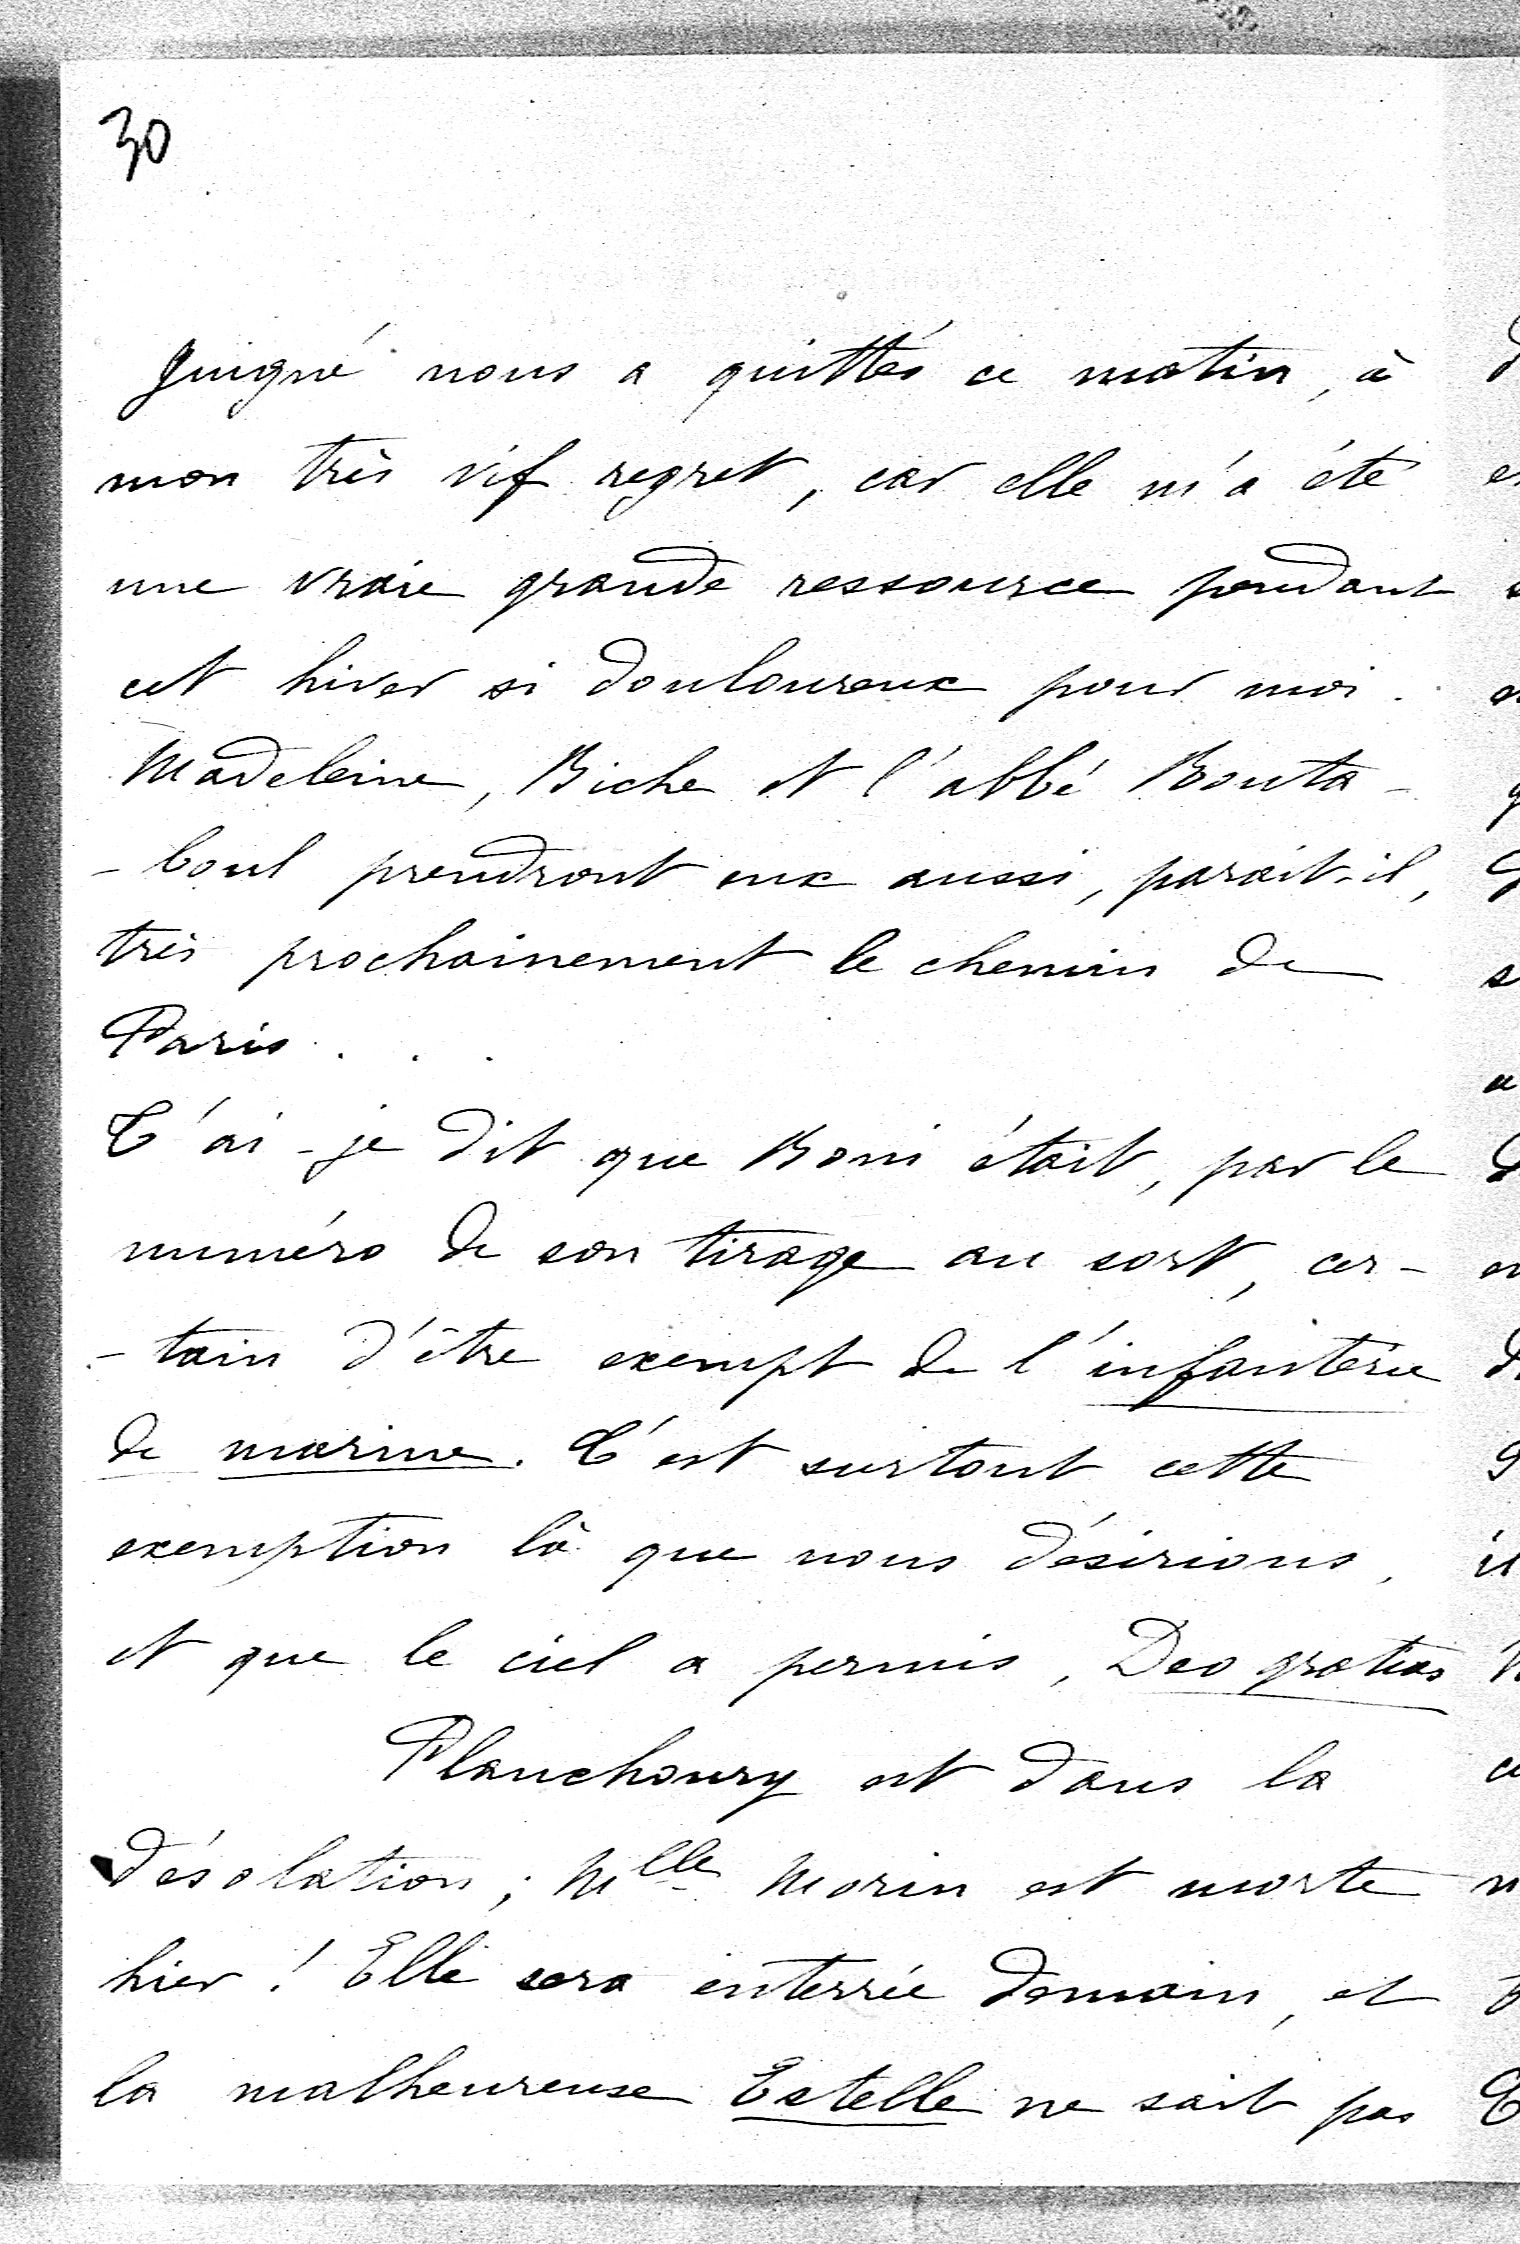 30
Juigné nous a quittés ce matin, à
mon très vif regret, car elle m'a été
une vraie grande ressource pendant
cet hiver si douloureux pour moi.
Madeleine, Biche et l'abbé Bouta-
-boul prendront eux aussi, paraît-il,
très prochainement le chemin de
Paris . . .
T'ai-je dit que Boni était, par le
numéro de son tirage au sort, cer-
-tain d'être exempt de l'infanterie
de marine. C'est surtout cette
exemption là que nous désirions,
et que le ciel a permis, Deo gratias
Planchoury est dans la
désolation; Mlle Morin est morte
hier! Elle sera enterrée demain, et
la malheureuse Estelle ne sait pas